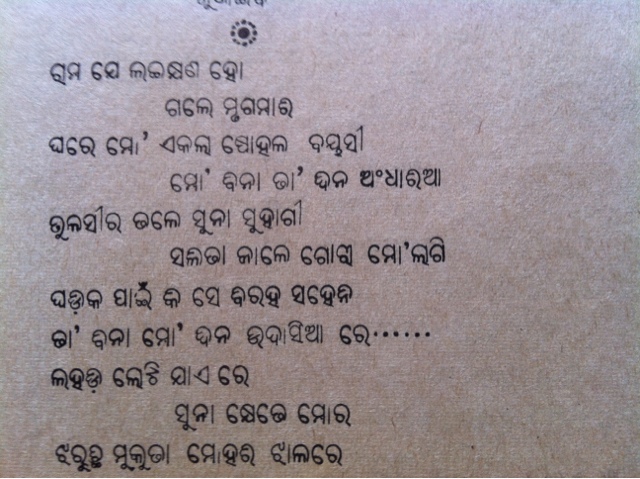 ରାମ ଯେ ଲଇକ୍ଷଣ ହୋ
ଗଲେ ମୃଗମାରି
ଘରେ ମୋ’ ଏକଲା ଷୋହଳ ବୟସୀ
ମୋ’ ବିନା ତା’ ଦିନ ଅଂଧାରିଆ
ତୁଳସୀର ତଳେ ସୁନା ସୁହାଗୀ
ସଳିତା ଜାଳେ ଗୋରୀ ମୋ’ଲାଗି
ଘଡ଼ିକ ପାଇଁ କି ସେ ବିରହ ସହେନି
ତା’ ବିନା ମୋ’ ଦିନ ଉଦାସିଆ ରେ······
ଲହଡ଼ି ଲେଟି ଯାଏ ରେ
ସୁନା କ୍ଷେତେ ମୋର
ଝରୁଛି ମୁକୁତା ମୋହରି ଝାଳରେ